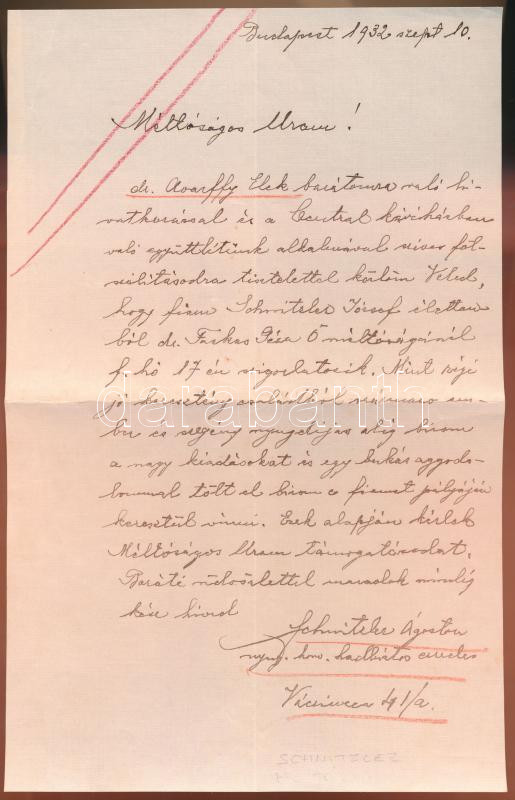 Budapest 1932 szept 10.
Méltóságos Uram!
dr. Avarffy Elek barátomra való hi-
vatkozással és a Central kávéházban
való együttlétünk alkalmával szives föl-
szólitásodra tisztelettel közlöm Veled,
hogy fiam Schnitzler József élettan
ból dr. Farkas Géza Ő méltóságánál
f. hó 17 én szigorlatozik. Mint régi
jó keresztény családból származó em-
ber és szegény nyugdijas alig birom
a nagy kiadásokat és egy bukás aggoda-
lommal tölt el birom e fiamat pályáján
keresztül vinni. Ezek alapján kérlek
Méltóságos Uram támogatásodat.
Baráti üdvözlettel maradok mindig
kész hived
Schnitzler Ágoston
nyug. hon. hadbiztos ezredes
Váciucca 41/a.
SCHNITZLER
darabanth